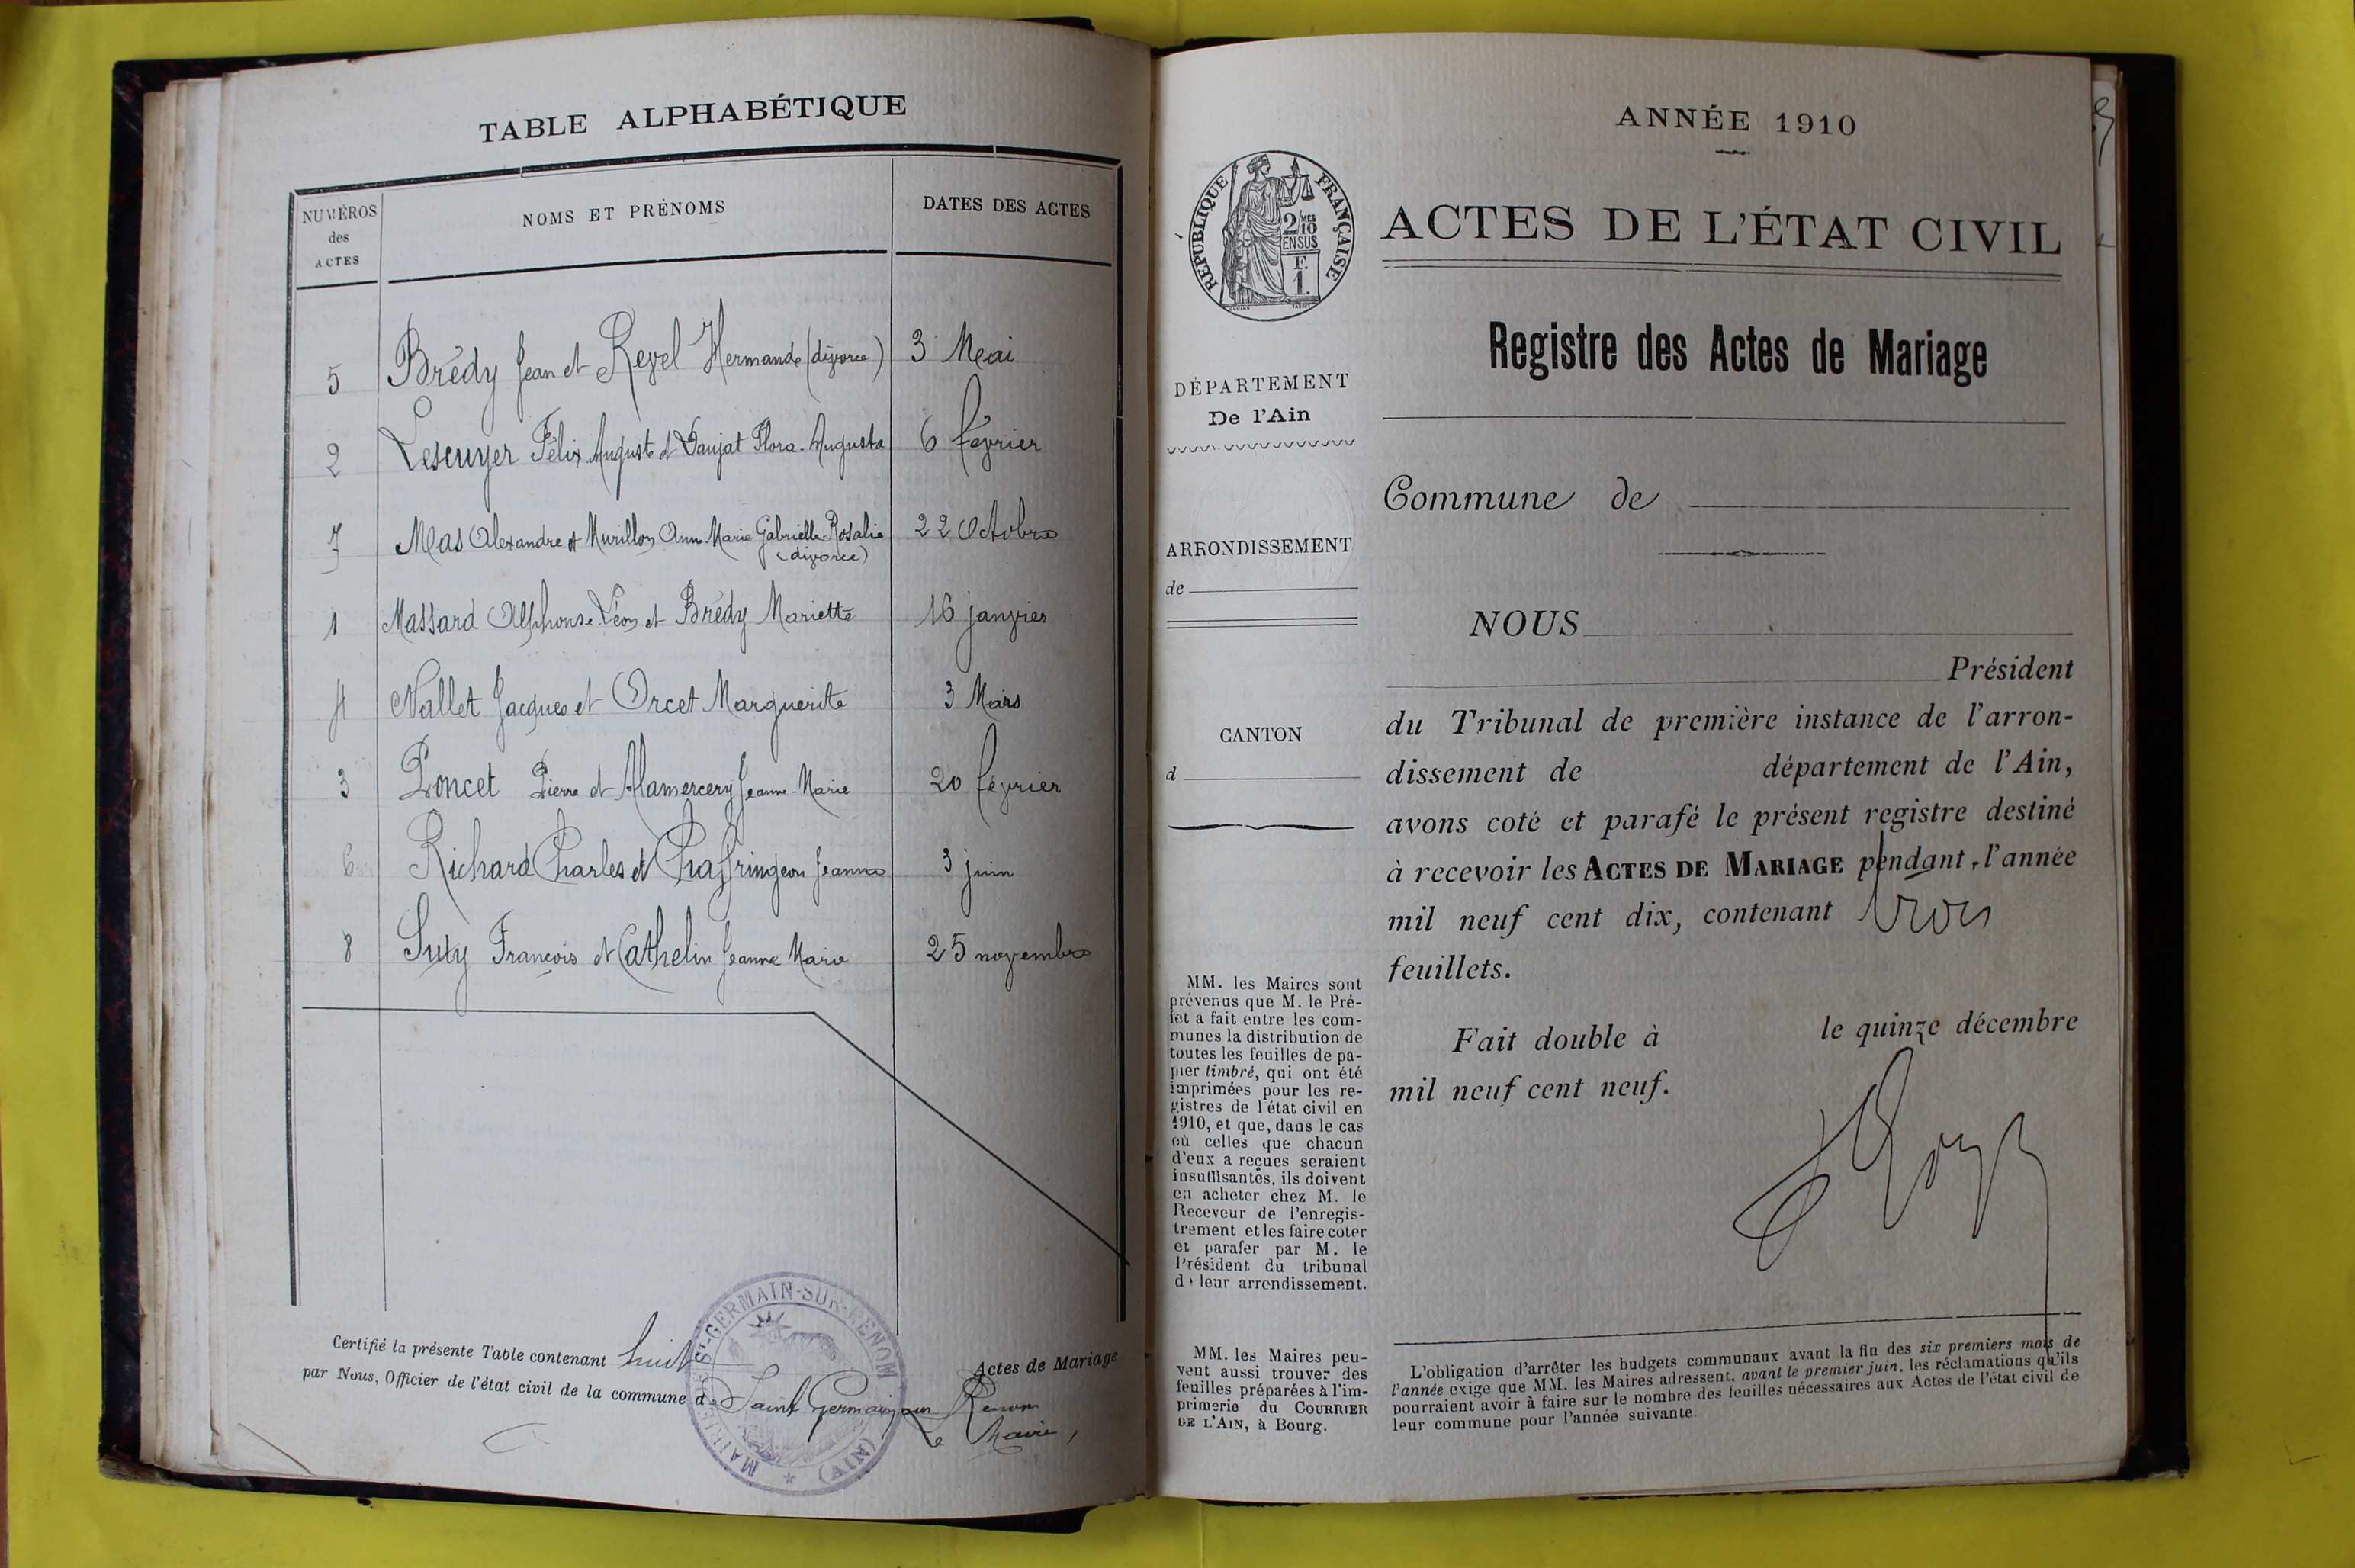 TABLE ALPHABÉTIQUE
NUMÉROS
des
ACTES
NOMS ET PRÉNOMS
DATES DES ACTES
5 Brédy Jean et Revel Hermande (divorce) 3 Mai
2 Lescuyer Félix Auguste et Daujat Flora-Augusta 6 février
7 Mas Alexandre et Murillon Anne Marie Gabrielle-Rosalie 22 Octobre
(divorce)
1 Massard Alphonse Léon et Brédy Mariette 16 janvier
4 Nallet Jacques et Orcet Marguerite 3 Mars
3 Poncet Pierre et Alamercery Jeanne-Marie 20 février
6 Richard Charles et Chaffringeon Jeanne 3 juin
8 Suty François et Cathelin Jeanne Marie 25 novembre
Certifié la présente Table contenant huit Actes de Mariage
par Nous, Officier de l'état civil de la commune de Saint Germain sur Renom
Le Maire,
MAIRIE DE ST-GERMAIN-SUR-RENOM
(AIN)
ANNÉE 1910
RÉPUBLIQUE FRANÇAISE
2/10 MES
EN SUS
F.
1.
ACTES DE L'ÉTAT CIVIL
Registre des Actes de Mariage
DÉPARTEMENT
De l'Ain
Commune de
ARRONDISSEMENT
de
NOUS
Président
du Tribunal de première instance de l'arron-
CANTON
d
dissement de département de l'Ain,
avons coté et parafé le présent registre destiné
à recevoir les ACTES DE MARIAGE pendant l'année
mil neuf cent dix, contenant trois
feuillets.
Fait double à le quinze décembre
mil neuf cent neuf.
MM. les Maires sont
prévenus que M. le Pré-
fet a fait entre les com-
munes la distribution de
toutes les feuilles de pa-
pier timbré, qui ont été
imprimées pour les re-
gistres de l'état civil en
1910, et que, dans le cas
où celles que chacun
d'eux a reçues seraient
insuffisantes, ils doivent
en acheter chez M. le
Receveur de l'enregis-
trement et les faire coter
et parafer par M. le
Président du tribunal
de leur arrondissement.
MM. les Maires peu-
vent aussi trouver des
feuilles préparées à l'im-
primerie du COURRIER
DE L'AIN, à Bourg.
L'obligation d'arrêter les budgets communaux avant la fin des six premiers mois de
l'année exige que MM. les Maires adressent, avant le premier juin, les réclamations qu'ils
pourraient avoir à faire sur le nombre des feuilles nécessaires aux Actes de l'état civil de
leur commune pour l'année suivante.